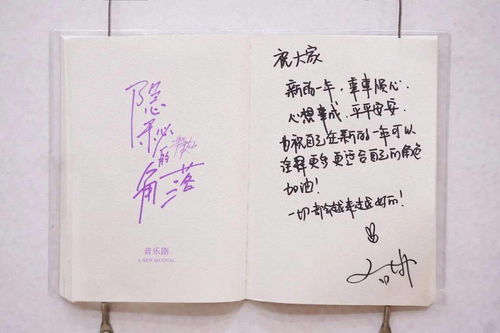 隐
秘
的
角落
音乐剧
A NEW MUSICAL
祝大家
新的一年，事事顺心，
心想事成，平平安安，
也祝自己在新的一年可以
诠释更多更适合自己的角色
加油！
一切都会越来越好的！